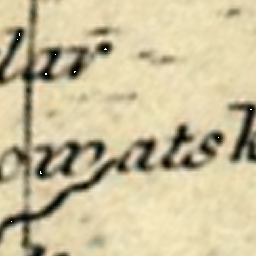 lar
omatsk